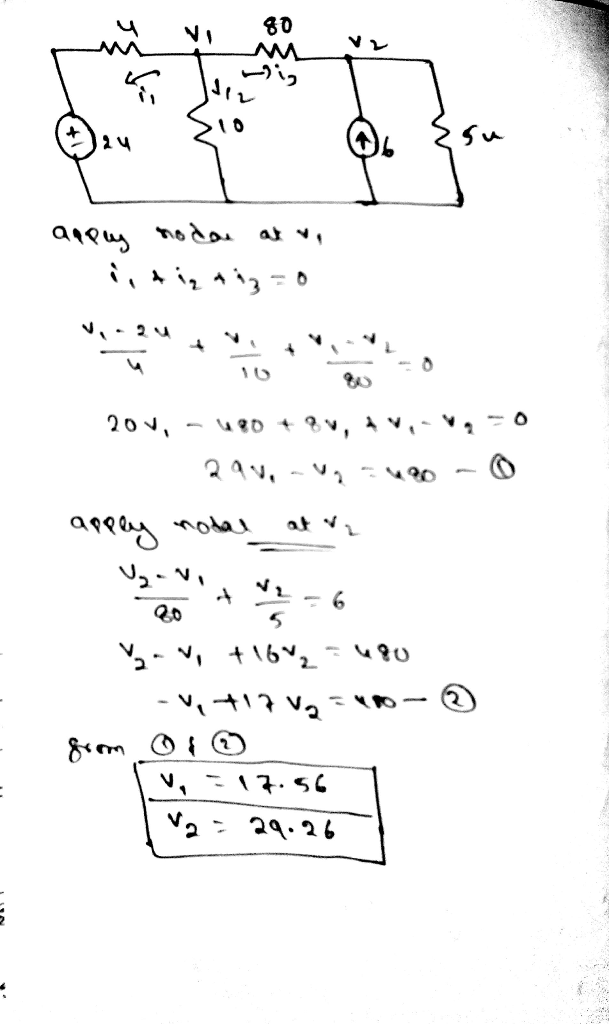 4 V1 80 V2
i1 i2 i3
+ 24 10 6 5
apply nodal at V1
i1 + i2 + i3 = 0
V1 - 24 / 4 + V1 / 10 + V1 - V2 / 80 = 0
20V1 - 480 + 8V1 + V1 - V2 = 0
29V1 - V2 = 480 - ①
apply nodal at V2
V2 - V1 / 80 + V2 / 5 = 6
V2 - V1 + 16V2 = 480
-V1 + 17V2 = 480 - ②
from ① & ②
V1 = 17.56
V2 = 29.26